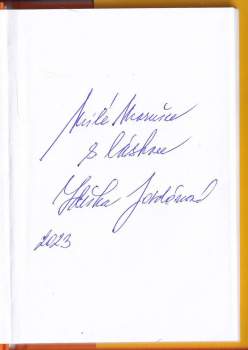 Milé Marušce
s láskou
Iduška Jordánová
2023